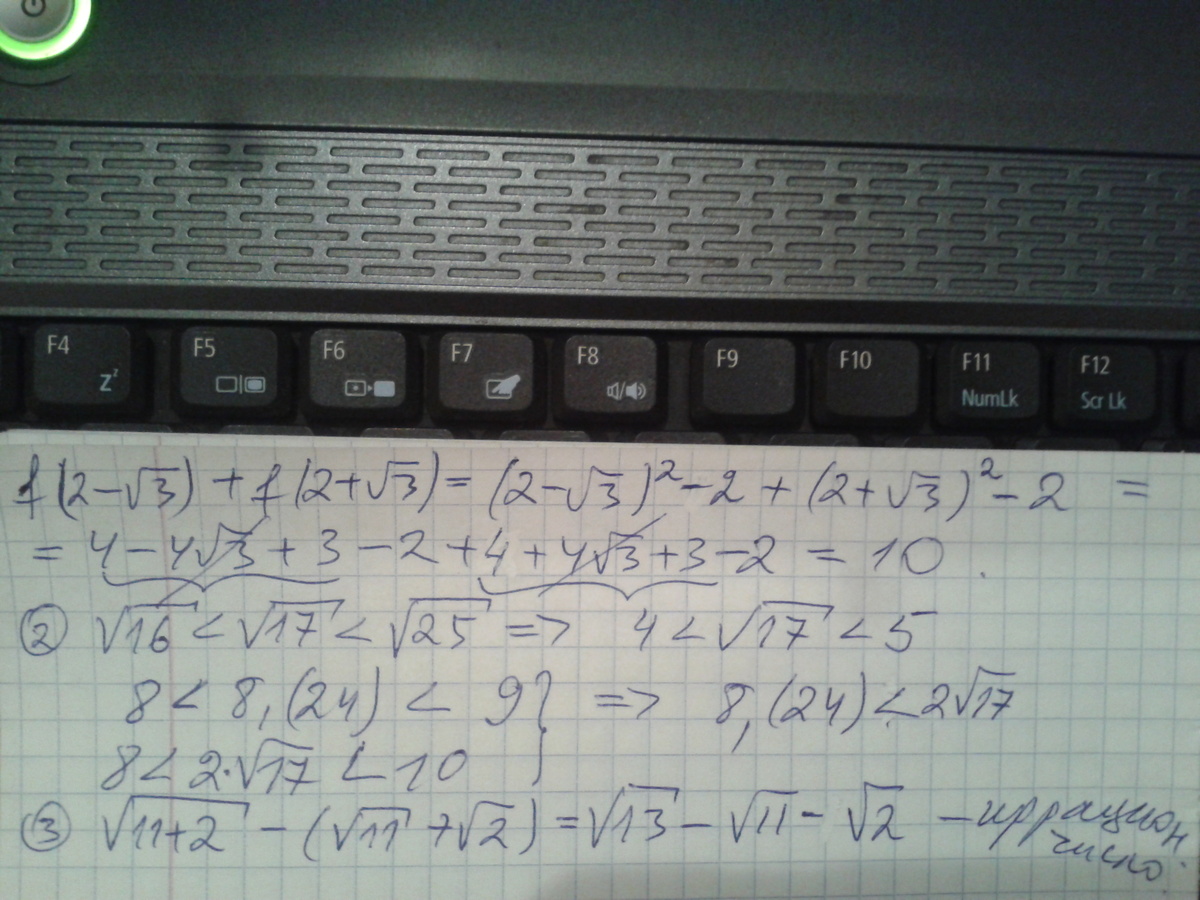 F4 F5 F6 F7 F8 F9 F10 F11 F12
Zz NumLk Scr Lk
f(2-√3)+f(2+√3)=(2-√3)²-2+(2+√3)²-2 =
= 4-4√3+3-2+4+4√3+3-2 = 10
② √16<√17<√25 => 4<√17<5
8<8,(24)<9} => 8,(24)<2√17
8<2·√17<10
③ √11+2 -(√11+√2)=√13-√11-√2 - иррацион
число.